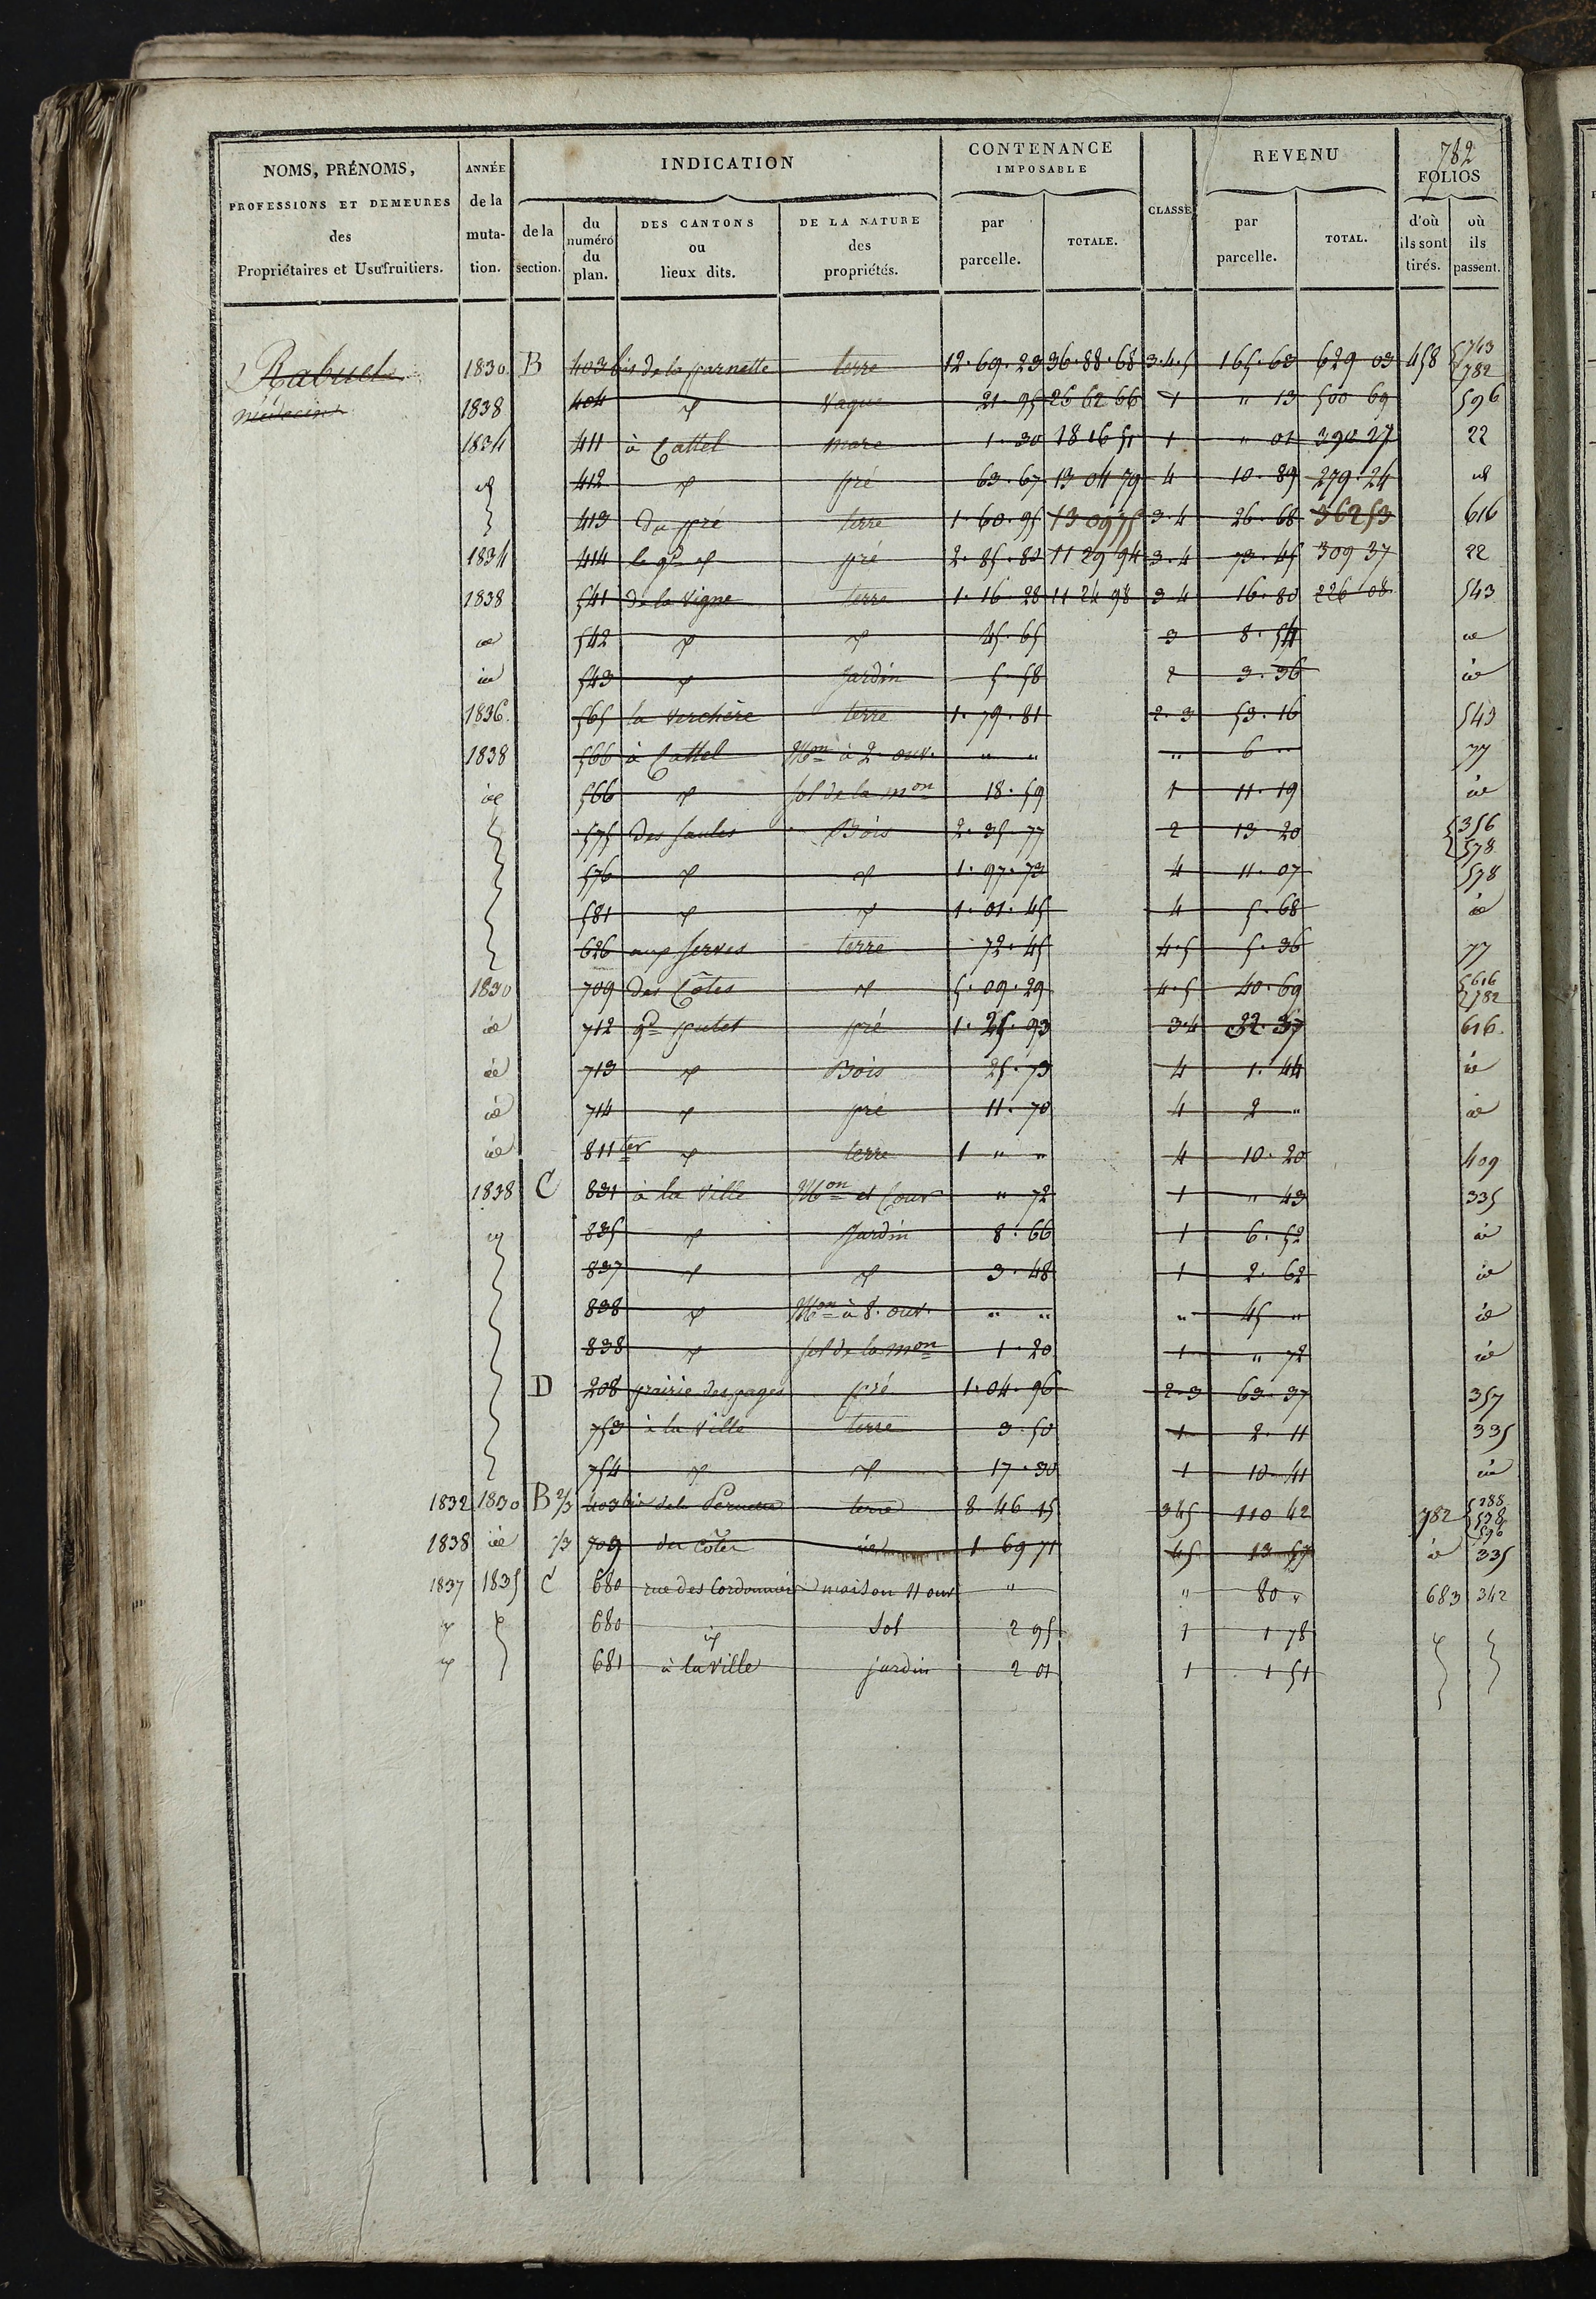 782
NOMS, PRÉNOMS, PROFESSIONS ET DEMEURES des Propriétaires et Usufruitiers. | ANNÉE de la mutation. | INDICATION | CONTENANCE IMPOSABLE | CLASSE | REVENU | FOLIOS
de la section. | du numéro du plan. | DES CANTONS ou lieux dits. | DE LA NATURE des propriétés. | par parcelle. | TOTALE. | par parcelle. | TOTAL. | d'où ils sont tirés. | où ils passent.
Rabuel 1830 B 403 bis de la parnette terre 12.69.23 36.88.68 3.4.5 165.63 629 03 458 743 782
médecin 1838 404 id vague 21.95 26 62 66 1 " 13 500 69 596
1834 411 à Cattel mare 1.30 18 16 51 1 " 01 390 27 22
id 412 id pré 63.67 13 04 79 4 10.89 279.24 id
413 du pré terre 1.60.95 3.4 26.68 362 53 616
1834 414 le gd id pré 2.85.83 11 29 94 3.4 73.45 309 37 22
1838 541 de la vigne terre 1.16.28 11 24 98 3.4 16.80 226 08 543
id 542 id id 45.65 3 8.54 id
id 543 id jardin 5.58 2 3.36 id
1836 565 la verchère terre 1.79.81 2.3 53.16 543
1838 566 à Cattel Mon à 2. ouv. " " " 6 " 77
id 566 id sol de la mon 18.59 1 11.19 id
575 des saules Bois 2.35.77 2 13.20 356 578
576 id id 1.97.73 4 11.07 578
581 id id 1.01.45 4 5.68 id
626 aux serves terre 72.45 4.5 5.36 77
1830 709 des Côtes id 5.09.29 4.5 40.69 616 782
id 712 gd putet pré 1.25.93 3.4 32.37 616
id 713 id Bois 25.73 4 1.44 id
id 714 id pré 11.70 4 2 " id
id 811 ter id terre 1 " " 4 10.20 409
1838 C 831 à la ville Mon et Cour " 72 1 " 43 335
id 835 id jardin 8.66 1 6.52 id
837 id id 3.48 1 2.62 id
838 id Mon à 8. ouv. " " " 45 " id
838 id sol de la mon 1.20 1 " 72 id
D 208 prairie des pages pré 1.04.96 2.3 63.37 357
753 à la ville terre 3.50 1 2.11 335
754 id id 17.30 1 10.41 id
1832 1830 B 2/3 403 bis terre 8 46 15 345 110 42 782 288 578 596
1838 id 1/3 709 des côtes id 1 69 71 45 13 57 id 335
1837 1835 C 680 rue des Cordonniers maison 11 ouv " " 80 " 683 342
id 680 id sol 2 95 1 1 78
id 681 à la ville jardin 2 01 1 1 51